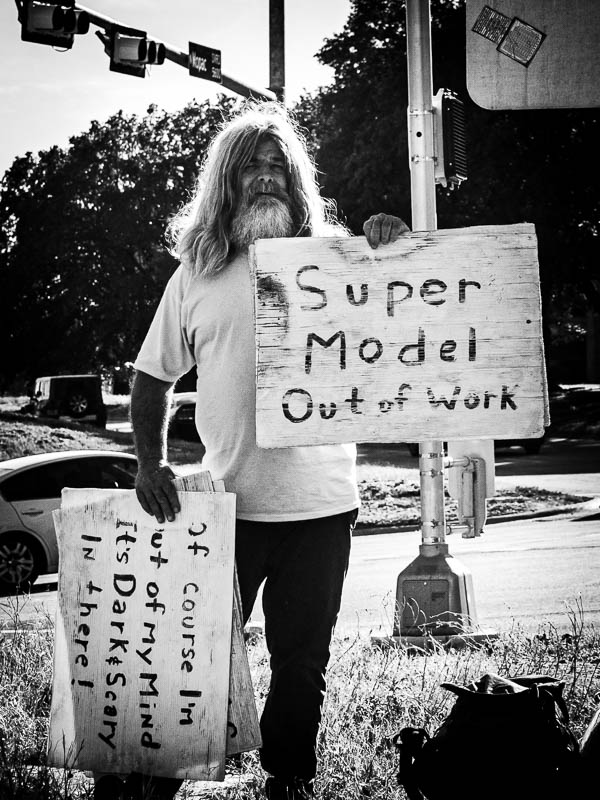 Mopac
Super
Model
Out of Work
Of course I'm
out of My Mind
It's Dark & Scary
In there!